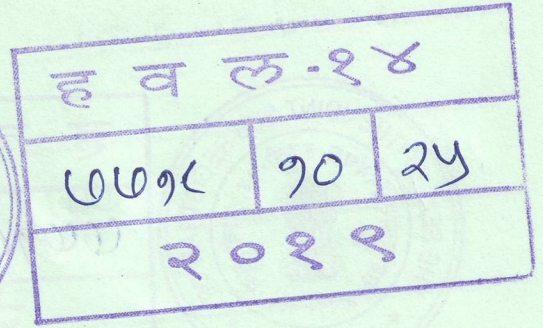 ह व ल-१४
७७१८ १० २५
२०१९